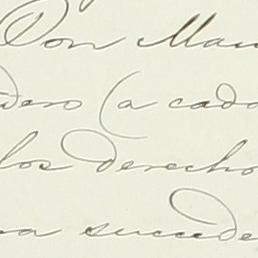 Don Man
dero (a cada
los derecho
a sucede